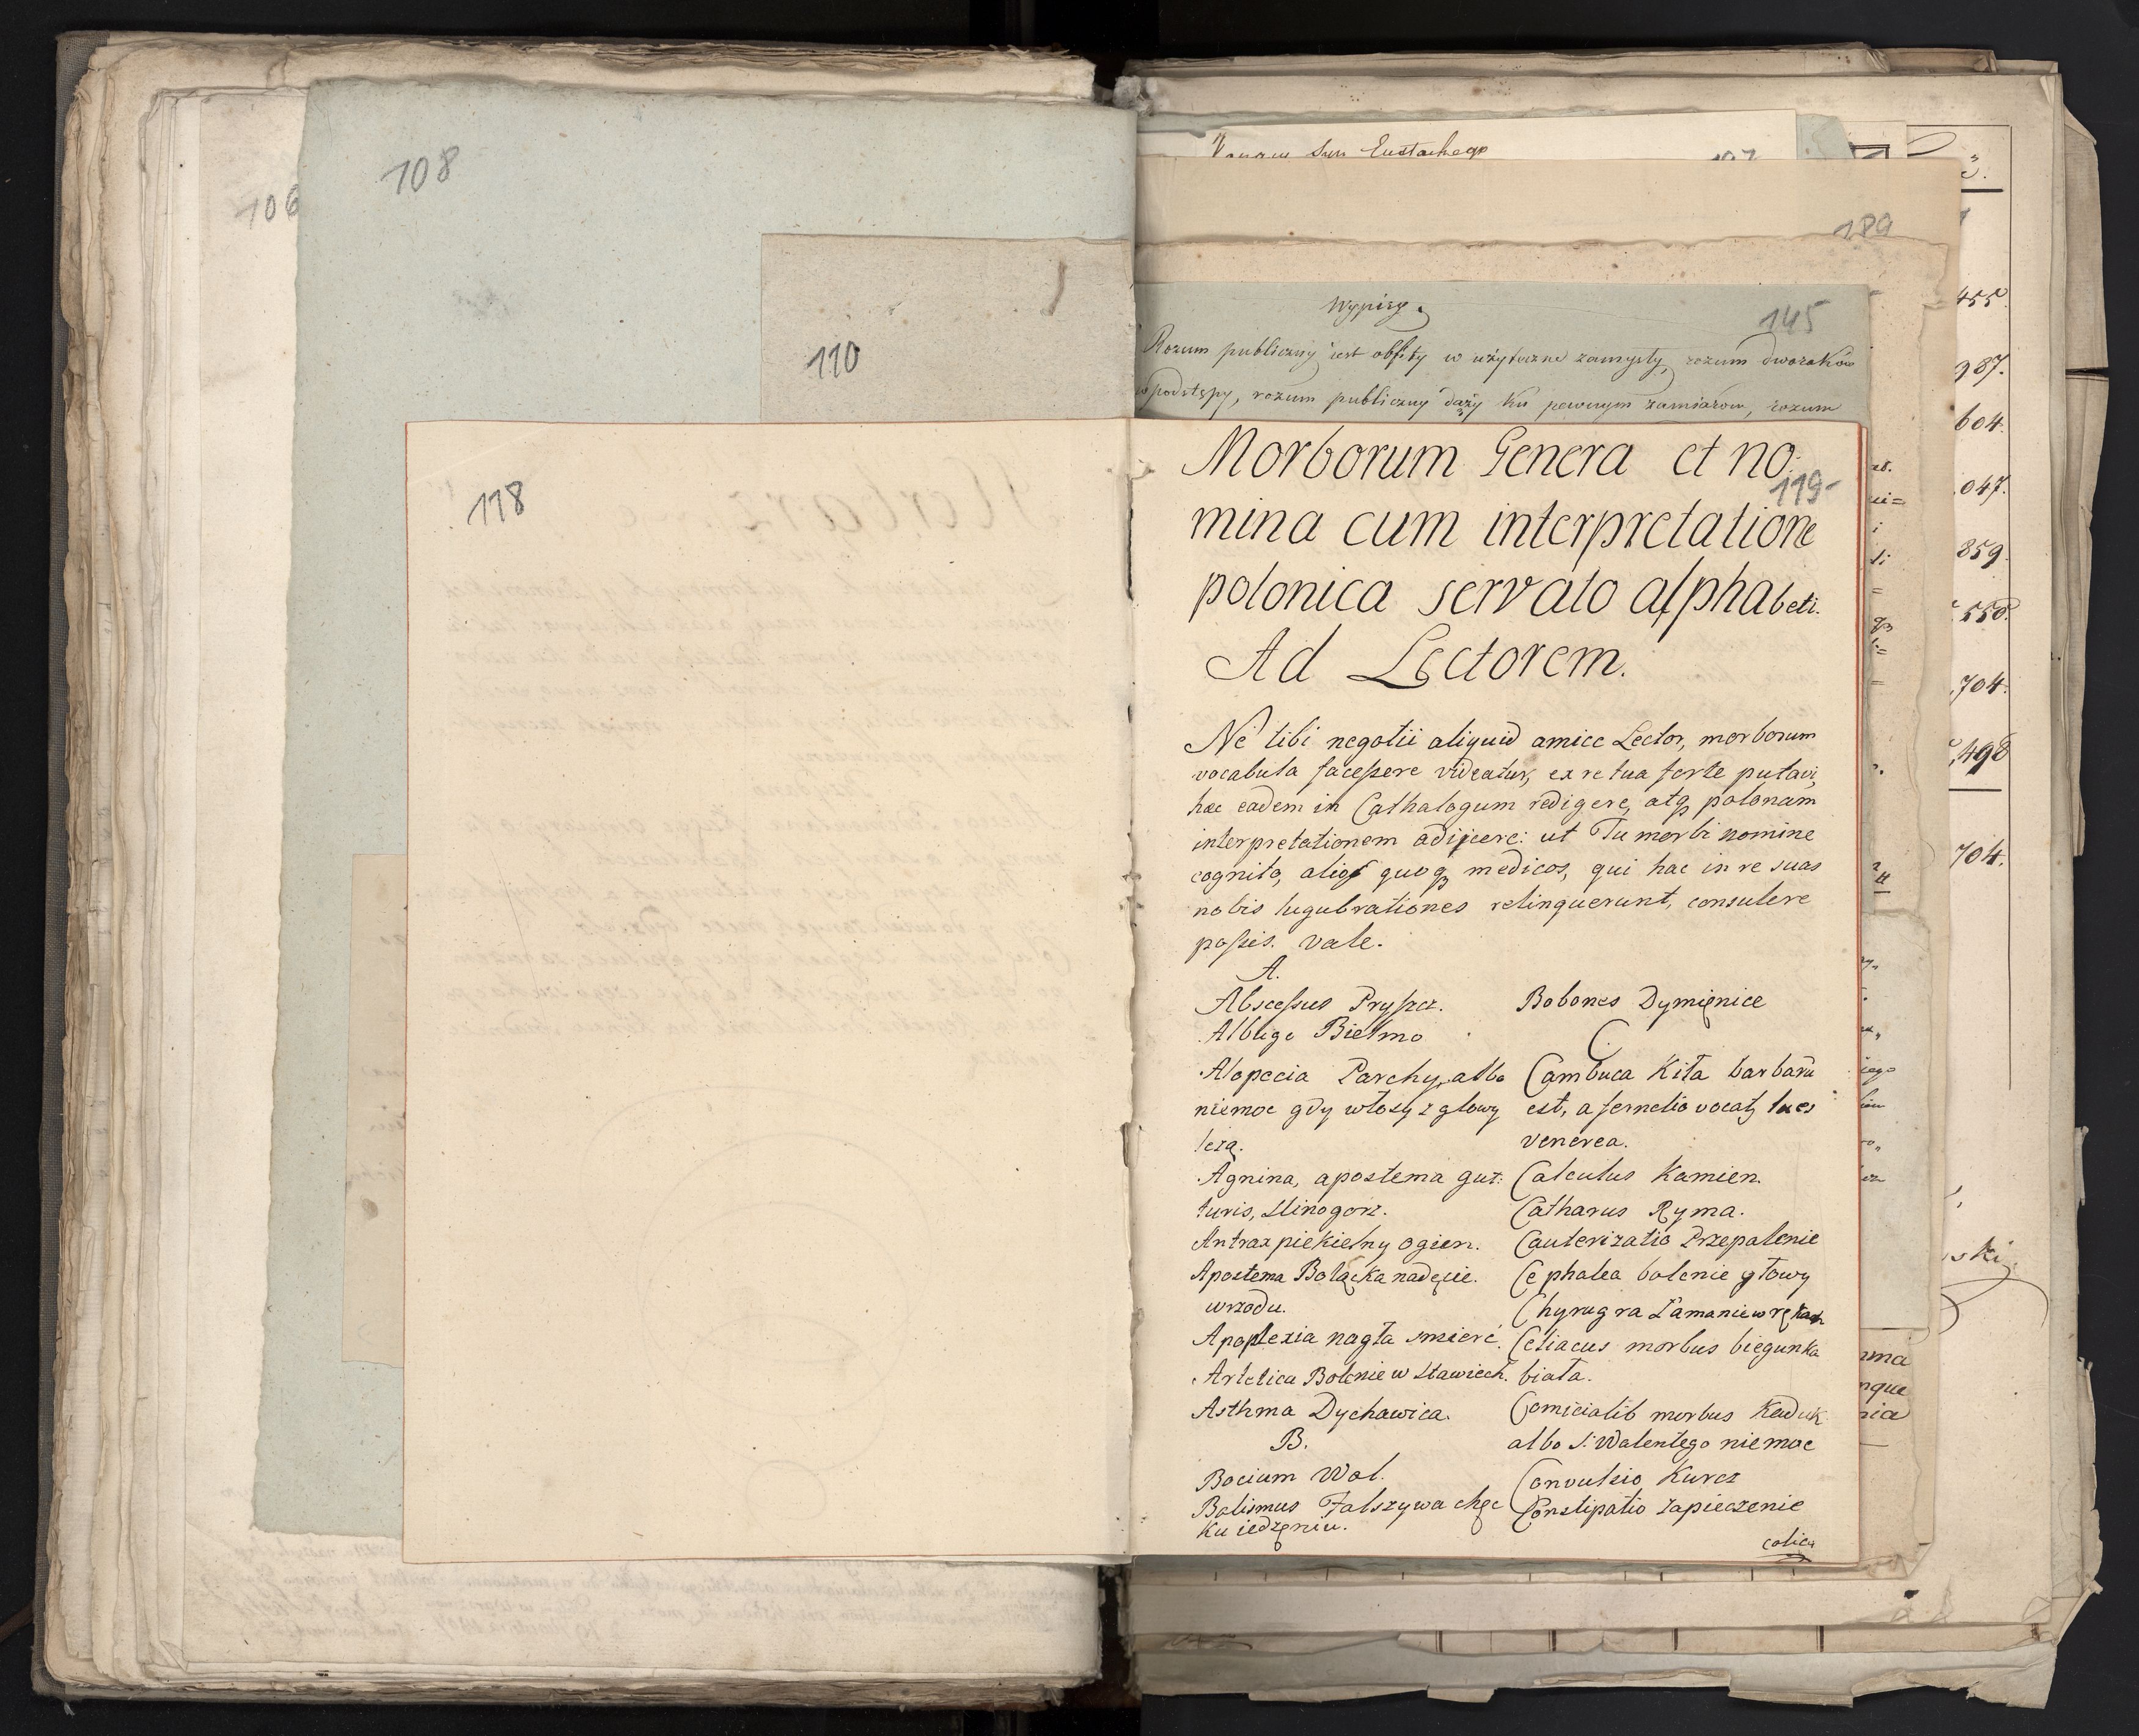 106
108
110
118
Wypisy
145
189
Rozum publiczny iest obfity w użyteczne zamysły, rozum dworaków
w podstępy, rozum publiczny dąży ku pewnym zamiarom, rozum
Eustachego
Morborum Genera et no:
119
mina cum interpretatione
polonica servato alphabeti.
Ad Lectorem.
Ne tibi negotii aliquid amice Lector, morborum
vocabula facessere videatur, ex re tua forte putavi,
hæc eadem in Cathalogum redigere, atq polonam
interpretationem adijcere: ut Tu morbi nomine
cognito, alios quoq medicos, qui hac in re suas
nobis lugubrationes relinquerunt, consulere
possis. vale.
A.
Abscessus Pryszcz.
Albugo Bielmo
Alopecia Parchy, albo
niemoc gdy włosy z głowy
lezą.
Agnina, apostema gut:
turis, Slinogorz.
Antrax piekielny ogien.
Apostema Bolączka nadęcie.
wrzodu.
Apoplexia nagła smierć.
Artetica Bolenie w Stawiech.
Asthma Dychawica.
B.
Bocium Wol.
Bolismus Fałszywa chęc
Ku iedzeniu.
Bobones Dymienice
C.
Cambuca Kiła barbarū
est, a fernelio vocatʒ lues
venerea.
Calculus Kamien.
Catharus Ryma.
Cauterizatio Przepalenie
Cephalea bolenie głowy
Chyrugra Łamanie w rękach
Celiacus morbus biegunka
biała.
Comicialib morbus Kaduk
albo S: Walentego niemoc
Convulsio Kurcz
Constipatio zapieczenie
colica
455.
987.
604.
047.
859.
550.
704.
498
704.